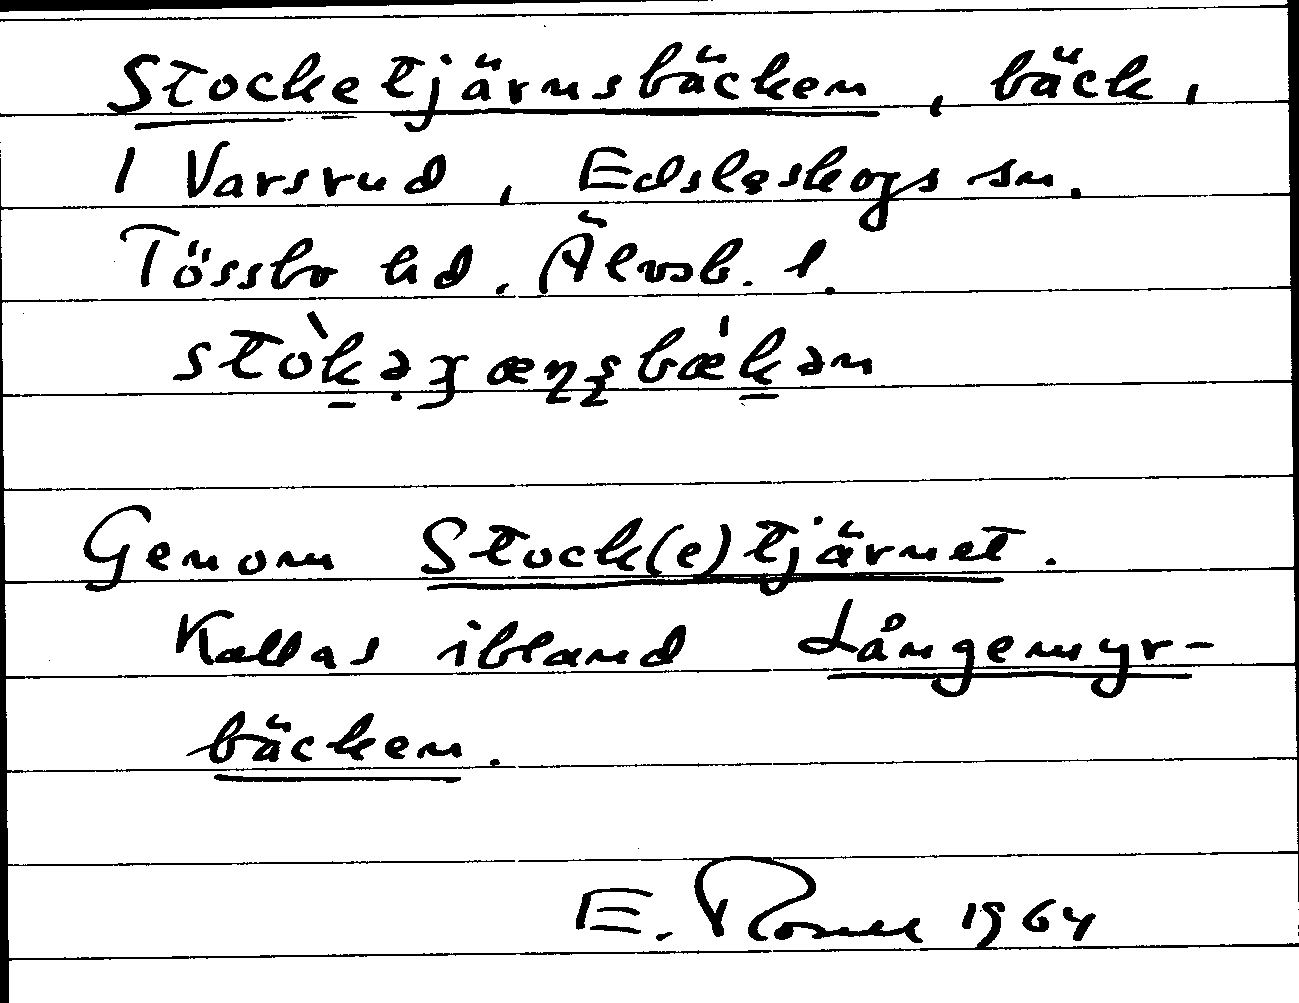 Stocketjärnsbäcken, bäck,
i Varsrud, Edsleskogs sn.
Tössbo hd. Älvsb. l.
Genom Stock(e)tjärnet.
Kallas ibland Långemyr-
bäcken.
E. 1964